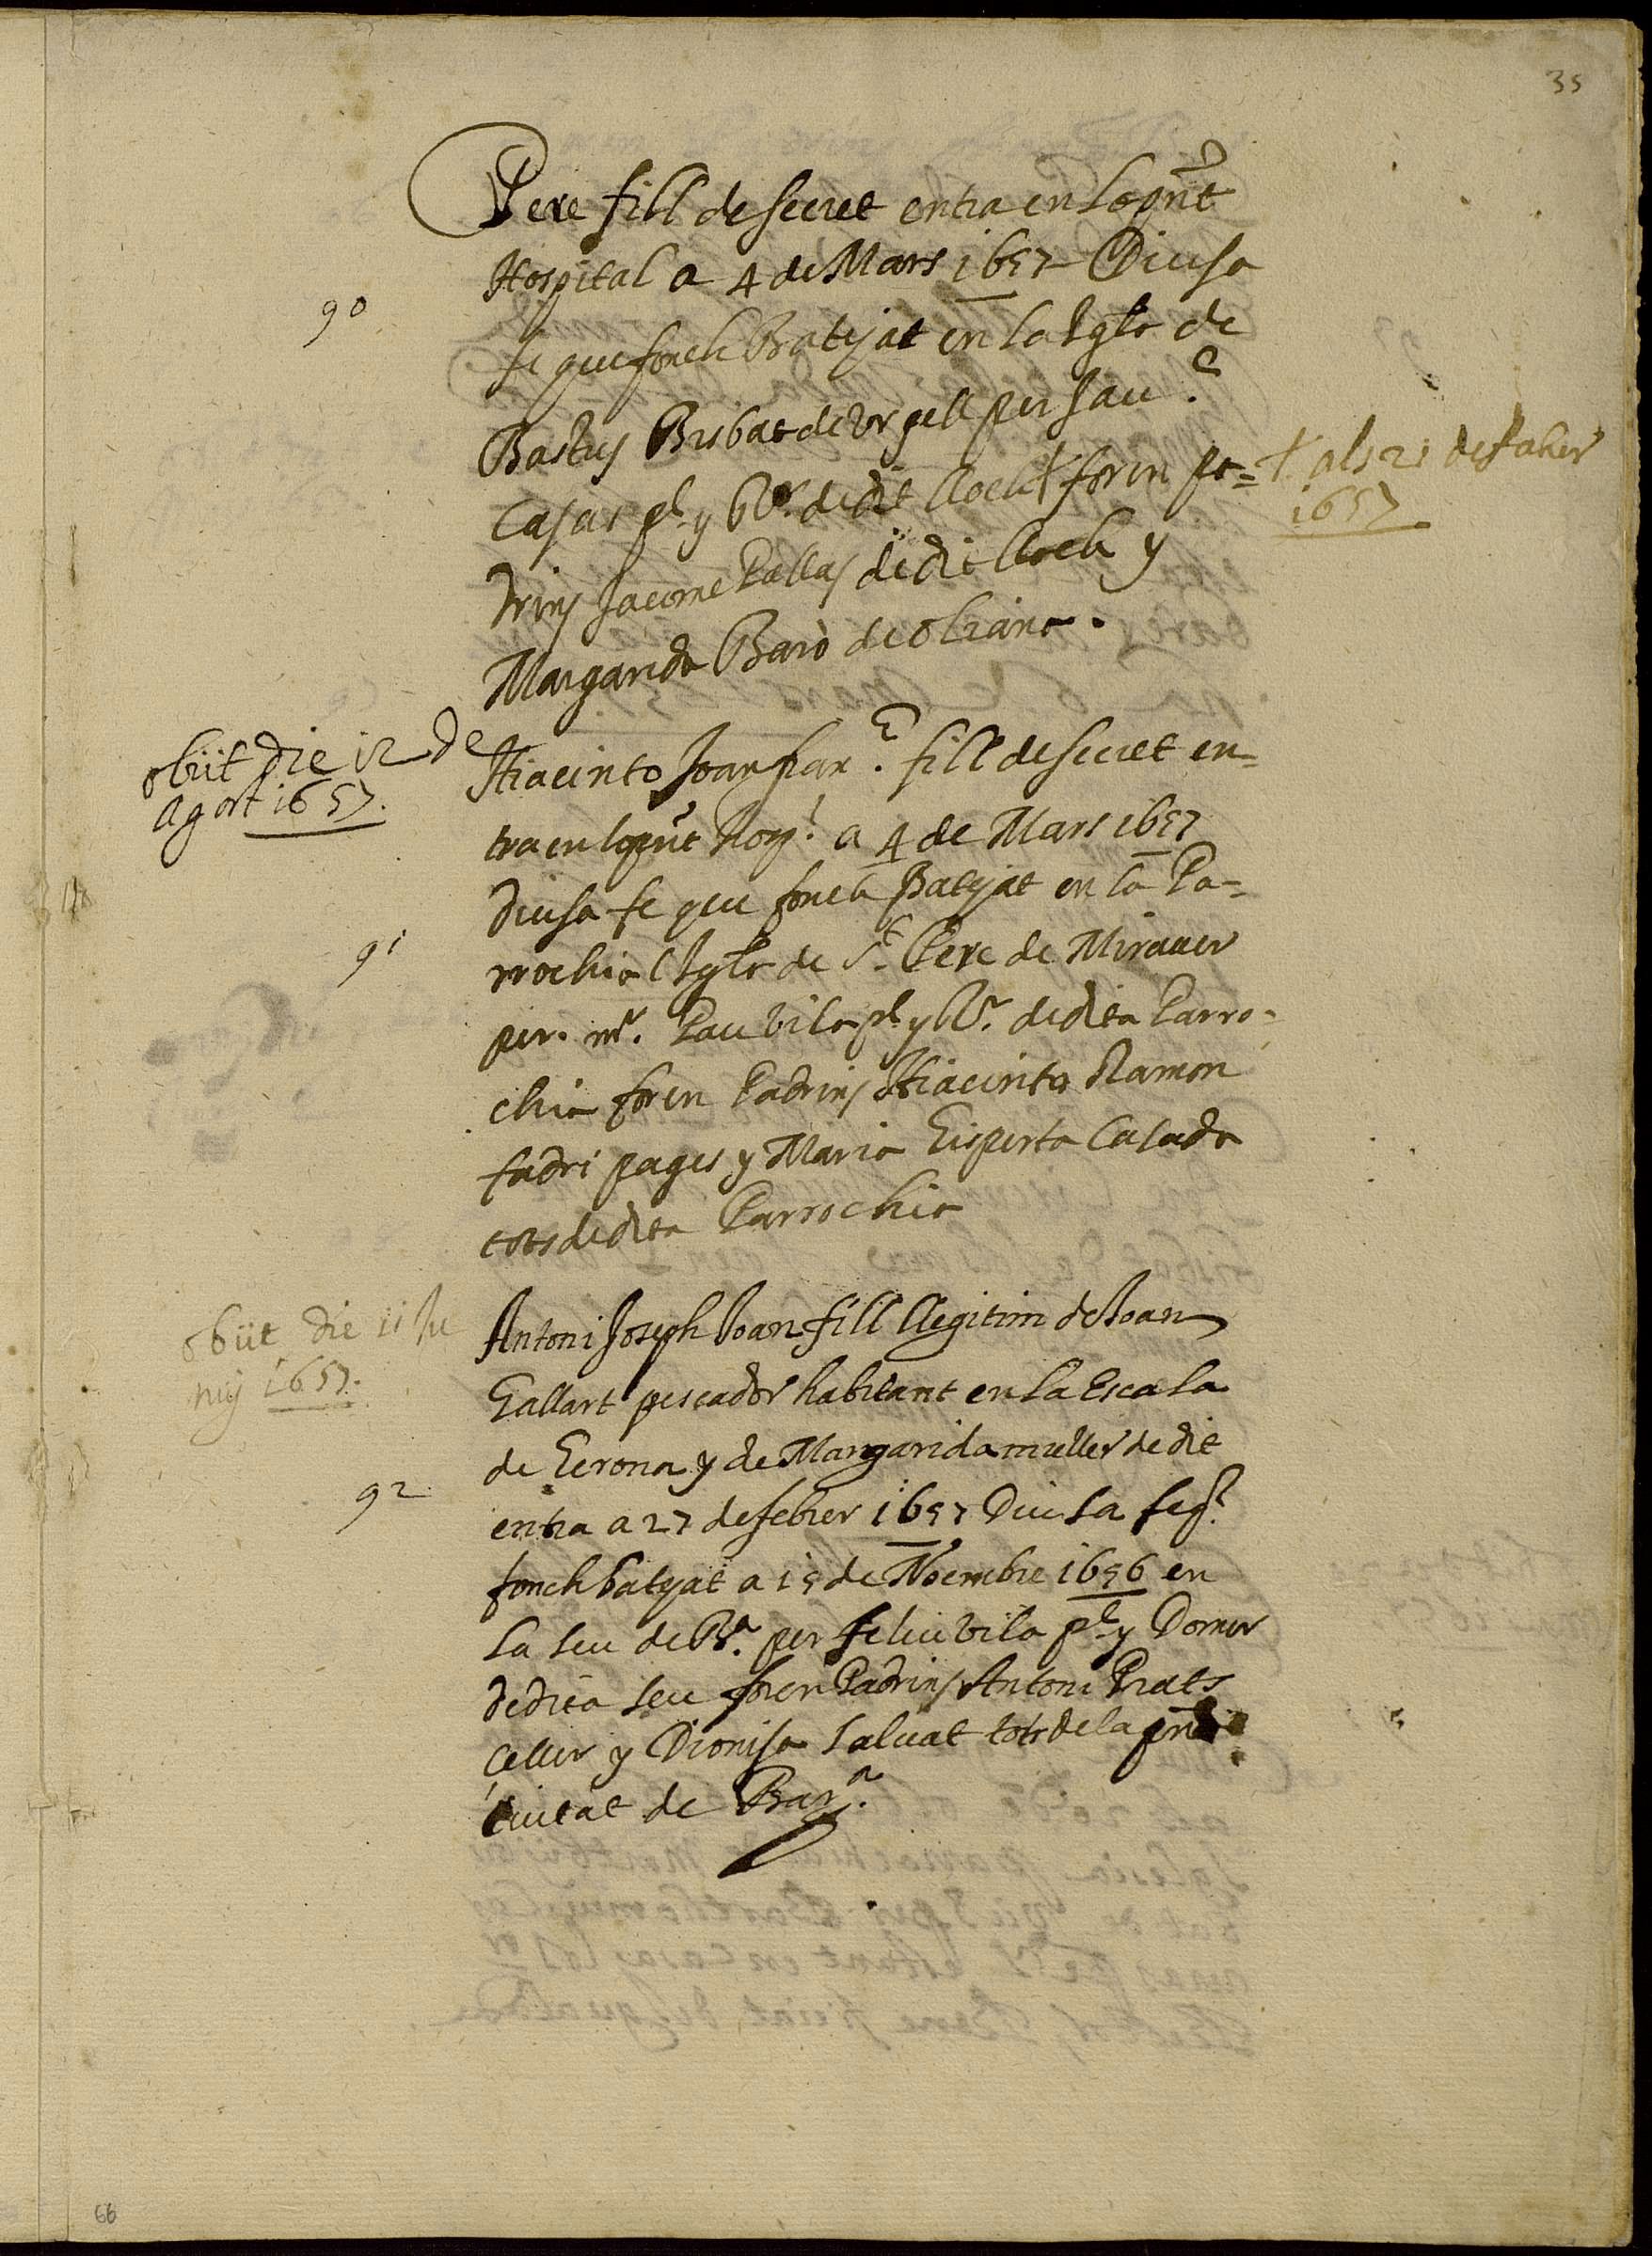 35
Pere fill de secret entra en lo pnt
Hospital a 4 de Mars 1657 Diu sa
90
fe que fonch Batejat en la Iglᵃ de
Bastus Bisbat de Urgell per Jauᵉ.
Casas pᵉ y Vʳ. de dit lloch ✝ foren pa=
✝ als 21 de febrer
1657
drins Jaume Pallas de dit lloch y
Margarida Baró de Oliana.
obiit die 12 de
Agost 1657.
Hiacinto Joan franᶜ. fill de secret en=
tra en lo pnt Hospˡ. a 4 de Mars 1657
diu sa fe que fonch Batejat en la Pa=
91
rrochial Iglᵃ de Sᵗ Pere de
per mʳ. Pau Vila pᵉ y Vʳ. de dita Parro=
chia foren Padrins Hiacinto Ramon
fadri pages y Maria Gisperta Casada
tots de dita Parrochia
obiit die 11 Ju
nij 1657.
Antoni Joseph Joan fill llegitim de Joan
Gallart pescador habitant en La Escala
de Gerona y de Margarida muller de dit
92
entra a 27 de febrer 1657 Diu sa fe qᵉ.
fonch batejat a 15 de Noembre 1656 en
La Seu de Bᵃ. per Feliu Vila pᵉ y Domer
de dita Seu foren Padrins Antoni Prats
Celler y Dionisa Salvat tots de la pnt
Ciutat de Barᵃ.
66